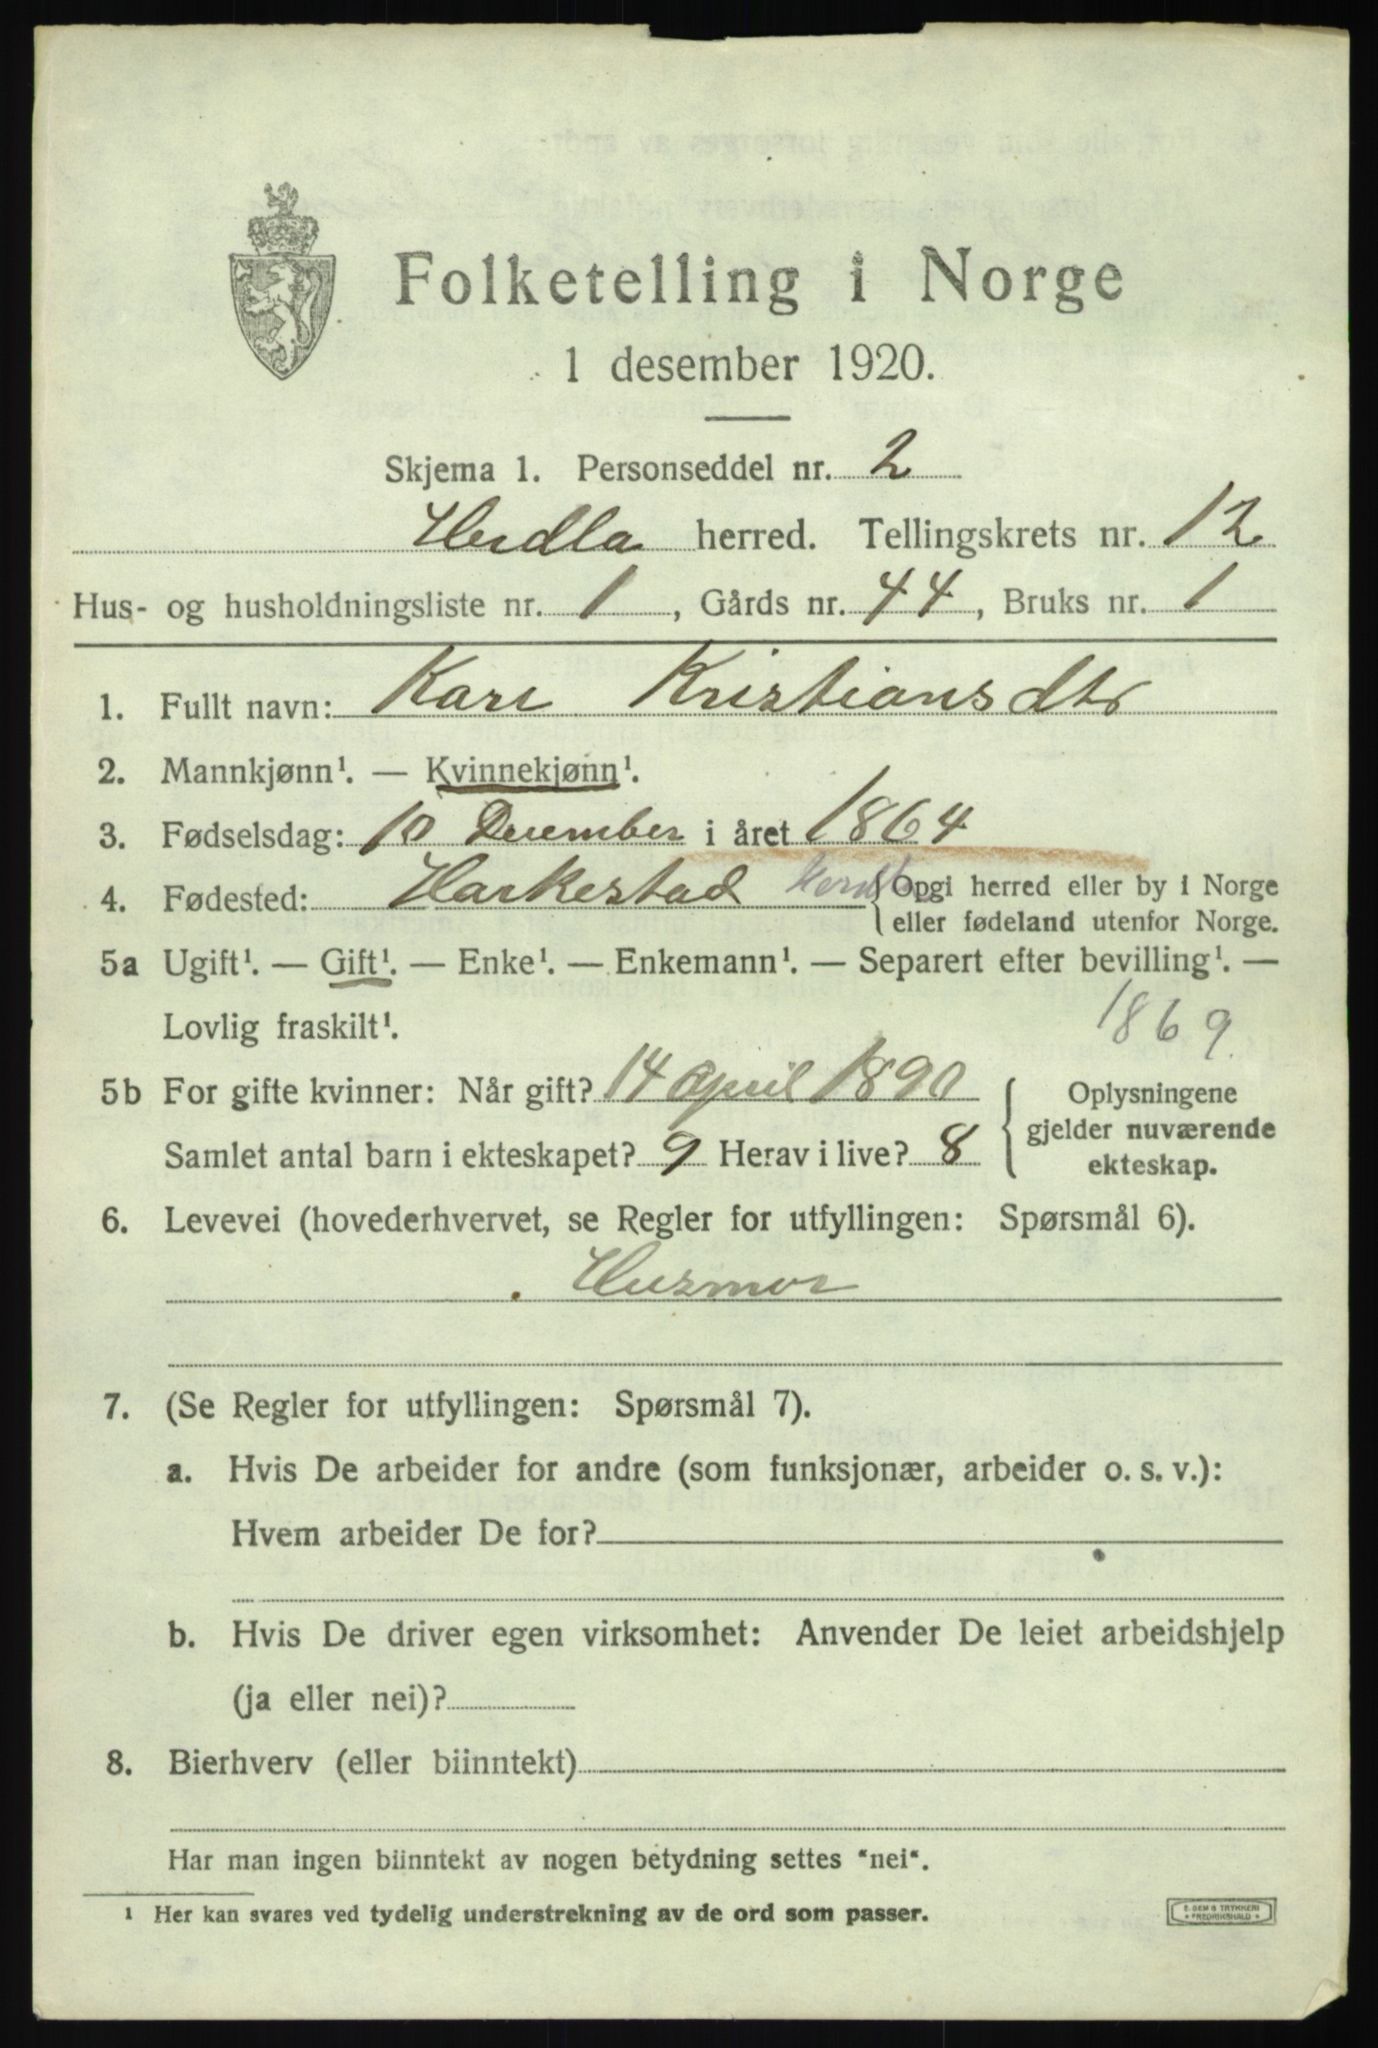 Folketelling i Norge
1 desember 1920.
Skjema 1. Personseddel nr. 2
Herdla herred. Tellingskrets nr. 12
Hus- og husholdningsliste nr. 1, Gårds nr. 44, Bruks nr. 1
1. Fullt navn: Kari Kristiansdtr
2. Mannkjønn¹. — Kvinnekjønn¹.
3. Fødselsdag: 10 December i året 1864
4. Fødested: Harkestad Herdla {Opgi herred eller by i Norge
eller fødeland utenfor Norge.
5a Ugift¹. — Gift¹. — Enke¹. — Enkemann¹. — Separert efter bevilling¹. —
Lovlig fraskilt¹. 1869
5b For gifte kvinner: Når gift? 14 April 1890 { Oplysningene
gjelder nuværende
Samlet antal barn i ekteskapet? 9 Herav i live? 8 ekteskap.
6. Levevei (hovederhvervet, se Regler for utfyllingen: Spørsmål 6).
Husmor
7. (Se Regler for utfyllingen: Spørsmål 7).
a. Hvis De arbeider for andre (som funksjonær, arbeider o. s. v.):
Hvem arbeider De for?
b. Hvis De driver egen virksomhet: Anvender De leiet arbeidshjelp
(ja eller nei)?
8. Bierhverv (eller biinntekt)
Har man ingen biinntekt av nogen betydning settes "nei".
¹ Her kan svares ved tydelig understrekning av de ord som passer.